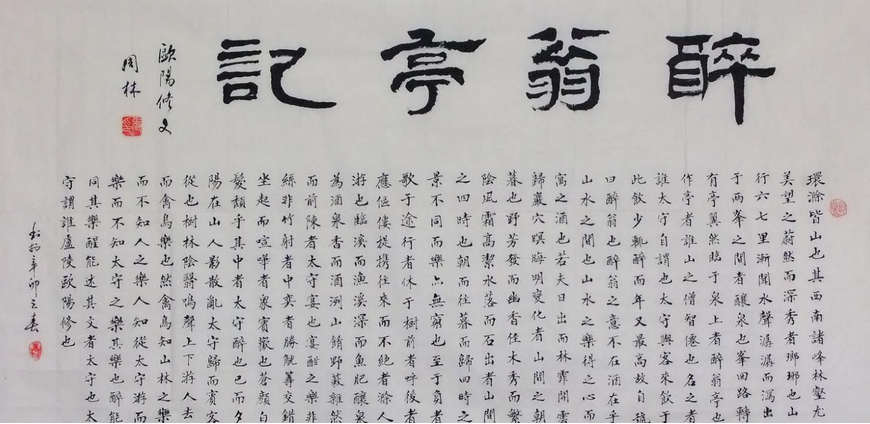 醉翁亭記
歐陽修文
周林
環滁皆山也其西南諸峰林壑尤
美望之蔚然而深秀者瑯琊也山
行六七里漸聞水聲潺潺而瀉出
于兩峯之間者釀泉也峯回路轉
有亭翼然臨于泉上者醉翁亭也
作亭者誰山之僧智僊也名之者
誰太守自謂也太守與客來飲于
此飲少輒醉而年又最高故自號
曰醉翁也醉翁之意不在酒在乎
山水之間也山水之樂得之心而
寓之酒也若夫日出而林霏開雲
歸巖穴暝晦明變化者山間之朝
暮也野芳發而幽香佳木秀而繁
陰風霜高潔水落而石出者山間
之四時也朝而往暮而歸四時之
景不同而樂亦無窮也至于負者
歌于途行者休于樹前者呼後者
應傴僂提攜往來而不絕者滁人
游也臨溪而漁溪深而魚肥釀泉
為酒泉香而酒洌山餚野蔌雜然
而前陳者太守宴也宴酣之樂非
絲非竹射者中奕者勝觥籌交錯
坐起而喧嘩者衆賓歡也蒼顏白
髮頹乎其中者太守醉也已而夕
陽在山人影散亂太守歸而賓客
從也樹林陰翳鳴聲上下游人去
而禽鳥樂也然禽鳥知山林之樂
而不知人之樂人知從太守游而
樂而不知太守之樂其樂也醉能
同其樂醒能述其文者太守也太
守謂誰廬陵歐陽修也
辛卯之春